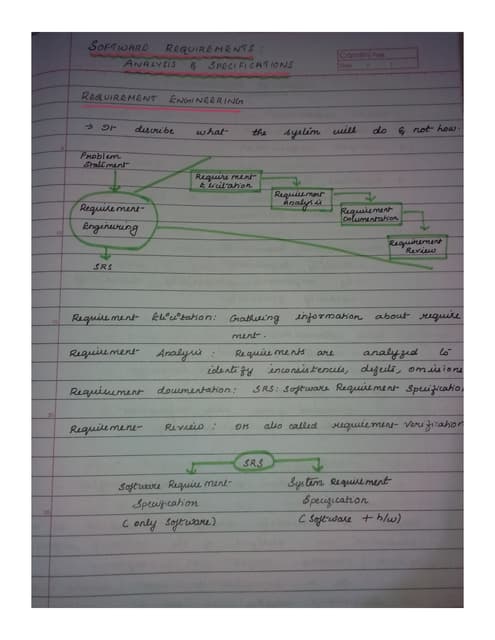 SOFTWARE REQUIREMENTS :
ANALYSIS & SPECIFICATIONS
Date
REQUIREMENT ENGINEERING
→ It describe what the system will do & not how.
Problem
Statment
Requirement
Elicitation
Requirement
Analysis
Requirement
Documentation
Requirement
Review
Requirement
Enginering
SRS
Requirement Elicitation: Gathering information about require
ment.
Requirement Analysis : Requirements are analyzed to
identify inconsistencies, defects, omissions
Requirement documentation: SRS: Software Requirement Specificatio
Requirement Review : also called requirement verification
SRS
Software Requirement
Specification
(only software)
System Requirement
Specification
(Software + h/w)